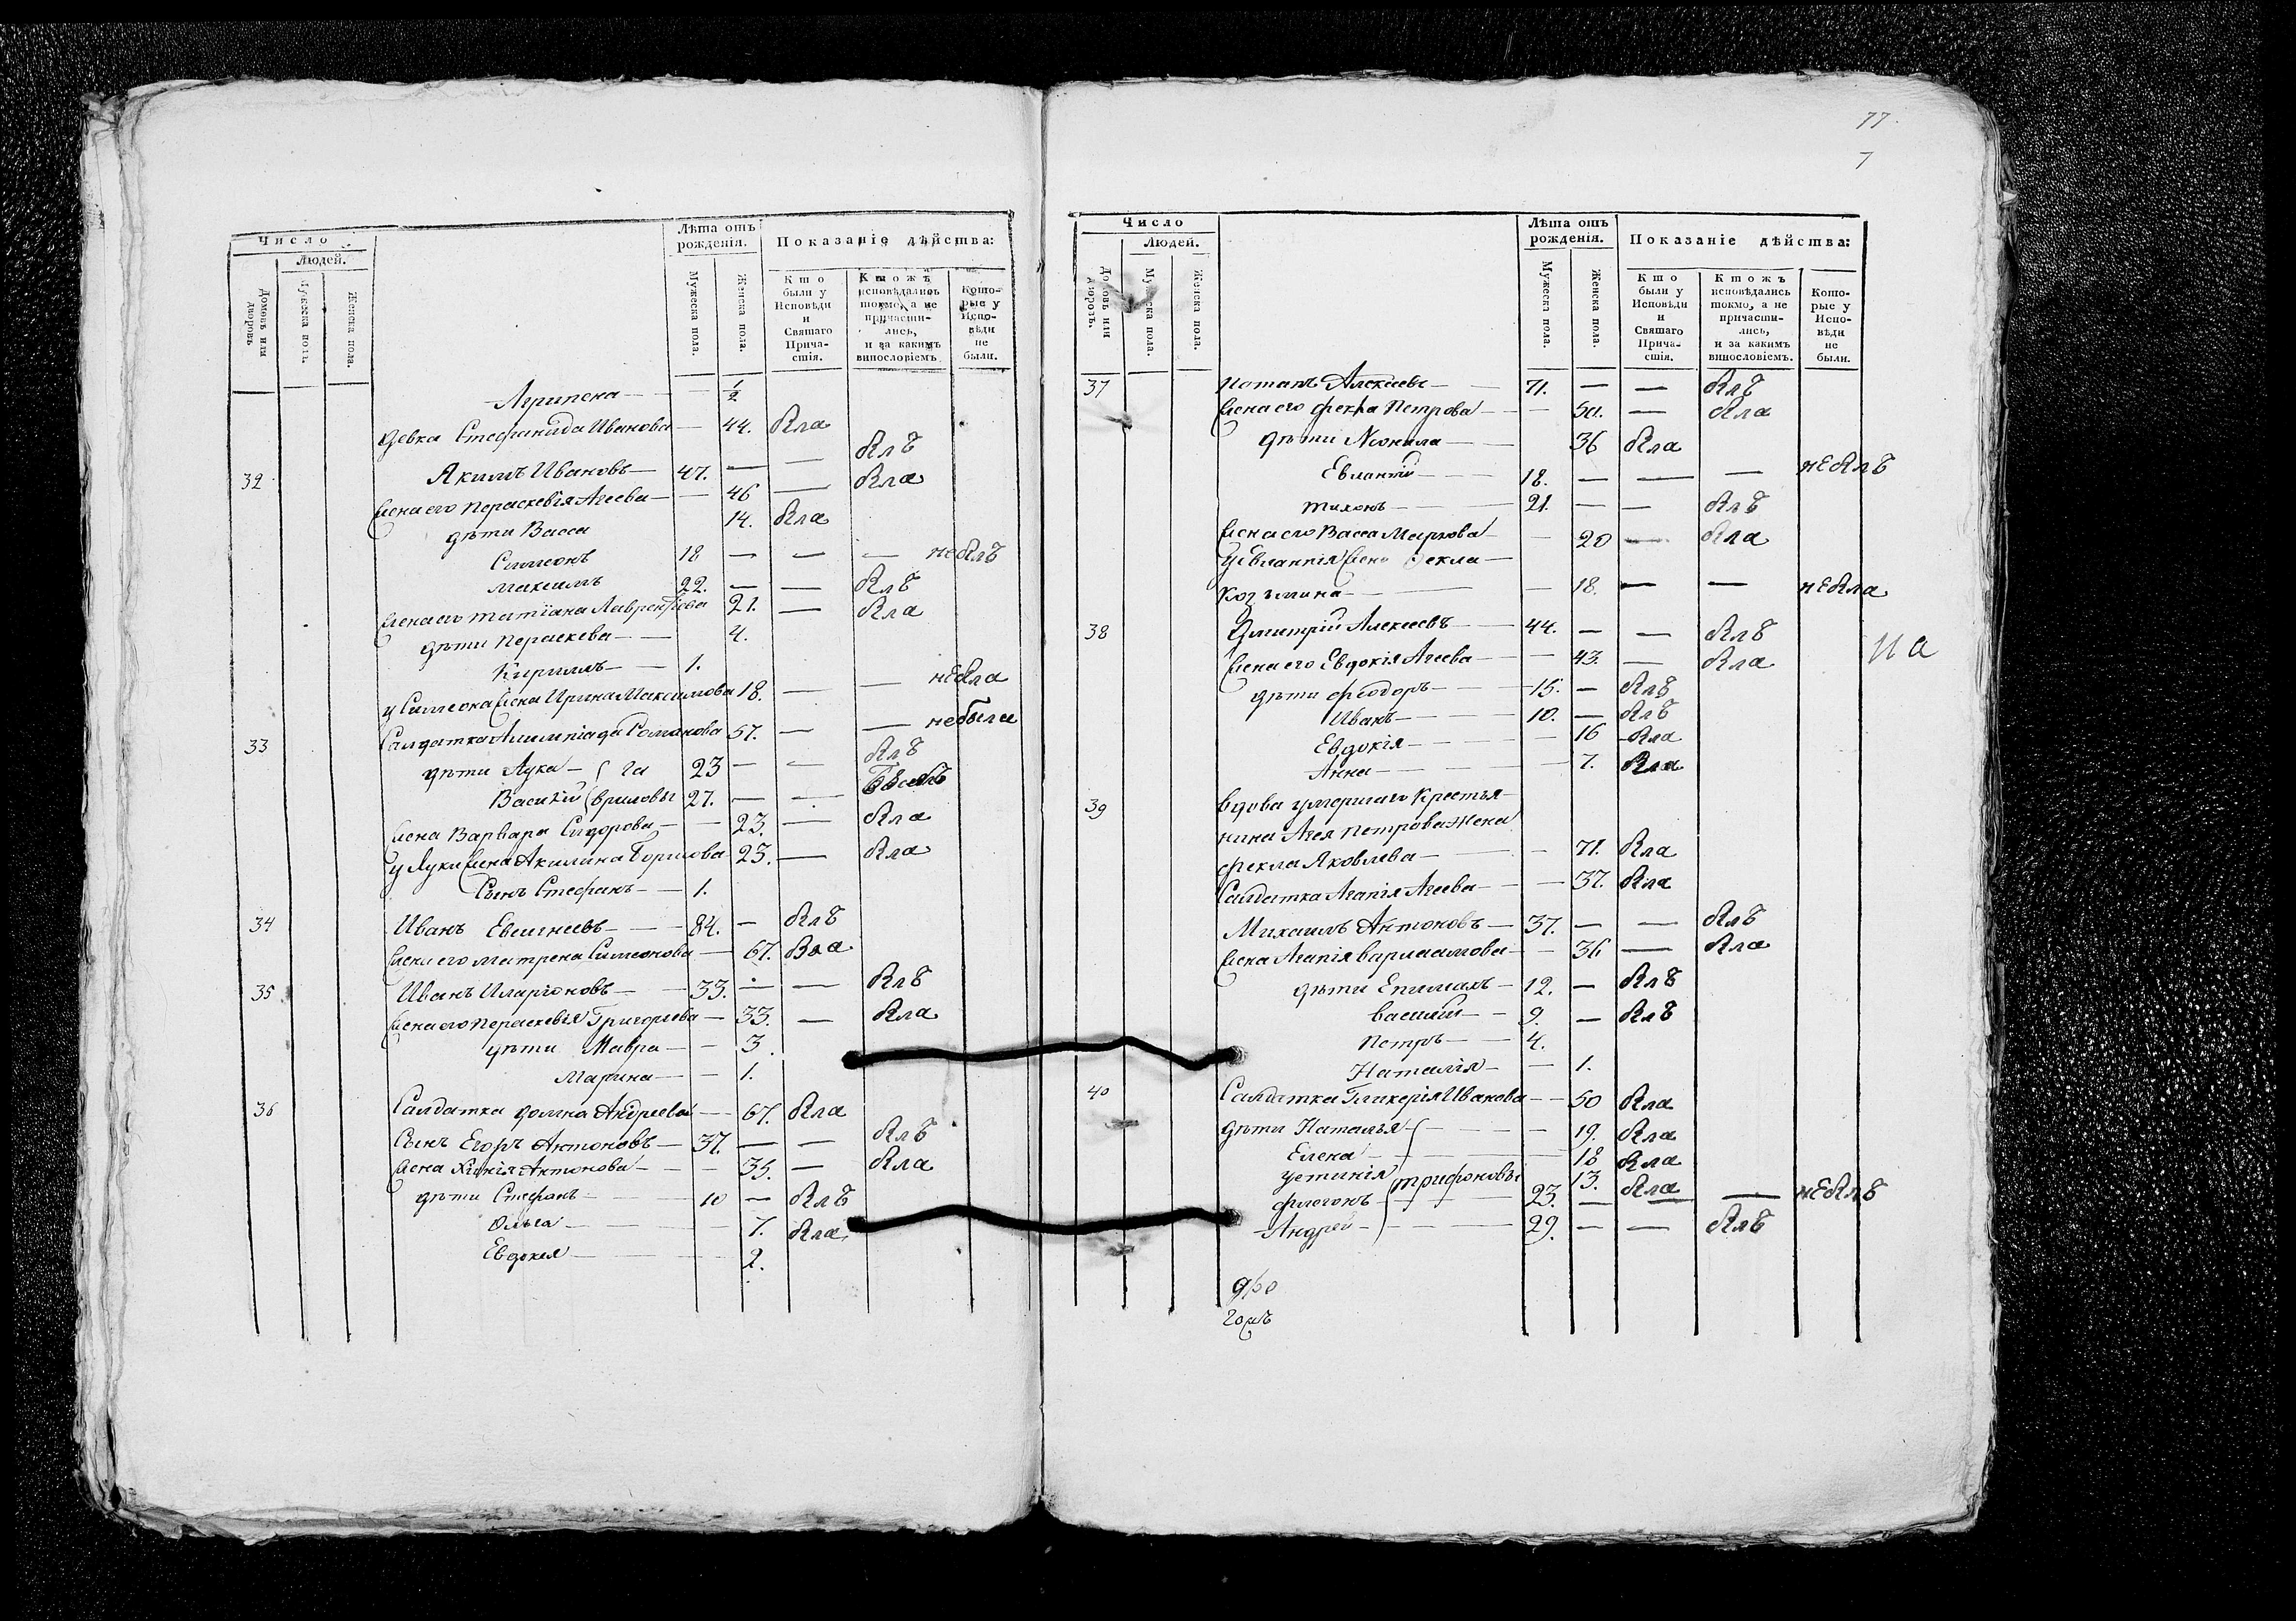 77.
7
Число
Людей.
Домовъ или дворовъ
Мужеска полъ.
Женска пола.
Лѣта отъ рожденія.
Мужеска пола.
Женска пола.
Показаніе дѣйства:
Кто были у Исповѣди и Святаго Причастія.
Ктожъ исповѣдались токмо, а не причастились, и за какимъ винословіемъ
Которые у Исповѣди не были.
Агрипена — 1/2
девка Стефанида Иванова — 44. Бла
32 Якимъ Ивановъ — 47. — — Блъ
Жена его Пераскевія Агеева — 46 — Бла
дѣти Васса 14. Бла
Симеонъ 18 — — — небылъ
Максимъ 22. — — Блъ
Жена его Татіана Лаврентіева 21. — Бла
дѣти Пераскева — 4.
Кирилъ — 1.
у Симеона Жена Ирина Максимова 18. — — небла
33 Салдатка Алимпіада Романова 57. — — небыла
дѣти Лука — Га 23 — — Блъ
Василій вриловы 27. — —
Жена Варвара Сидорова — 23. — Бла
у Луки Жена Акилина Борисова 23. — Бла
Сынъ Стефанъ — 1.
34 Иванъ Евсигнеевъ — 84. — Блъ
Жена его Матрена Симеонова — 67. Бла
35 Иванъ Иларіоновъ — 33. — — Блъ
Жена его Пераскевья Григорьева — 33. — Бла
дѣти Мавра — 3.
Марина — 1.
36 Салдатка домна Андреева — 67. Бла
Сынъ Егоръ Антоновъ — 37. — — Блъ
Жена Антонова — 35. — Бла
дѣти Стефанъ — 10 — Блъ
Ольга — 7. Бла
Евдокея — 2.
Число
Людей.
Домовъ или дворовъ.
Мужеска пола.
Женска пола.
Лѣта отъ рожденія.
Мужеска пола.
Женска пола.
Показаніе дѣйства:
Кто были у Исповѣди и Святаго Причастія.
Ктожъ исповѣдались токмо, а не причастились, и за какимъ винословіемъ.
Которые у Исповѣди не были.
37 Потапъ Алексеевъ — 71. — — Блъ
Жена его Фекла Петрова — — Бла
дѣти Неонила — 36 Бла
Евлампій — 18. — — — неБлъ
Тихонъ — 21. — — Блъ
Жена его Васса Маркова — 20 — Бла
у Евлампія Жена Фекла —
Козъмина — 18. — — неБла
38 Дмитрій Алексеевъ — 44. — — Блъ
Жена его Евдокія Агеева — 43. — Бла
дѣти Феодоръ — 15. — Блъ
Иванъ — 10. — Блъ
Евдокія — 16 Бла
Анна — 7. Бла
39 Вдова умершаго Крестья-
нина Агея Петрова жена
Фекла Яковлева — 71. Бла
Салдатка Агапія Агеева — 37. Бла
Михаилъ Антоновъ — 37. — — Блъ
Жена Агапія Варлаамова — 36 — Бла
дѣти Епимахъ — 12. — Блъ
Василій — 9. — Блъ
Петръ — 4.
Наталія — 1.
40 Салдатка Гликерія Иванова — 50 Бла
дѣти Наталья — 19. Бла
Елена — 18 Бла
Устинія Трифоновы 13. Бла
Флегонъ — 23. — — — неБлъ
Андрей — 29. — — Блъ